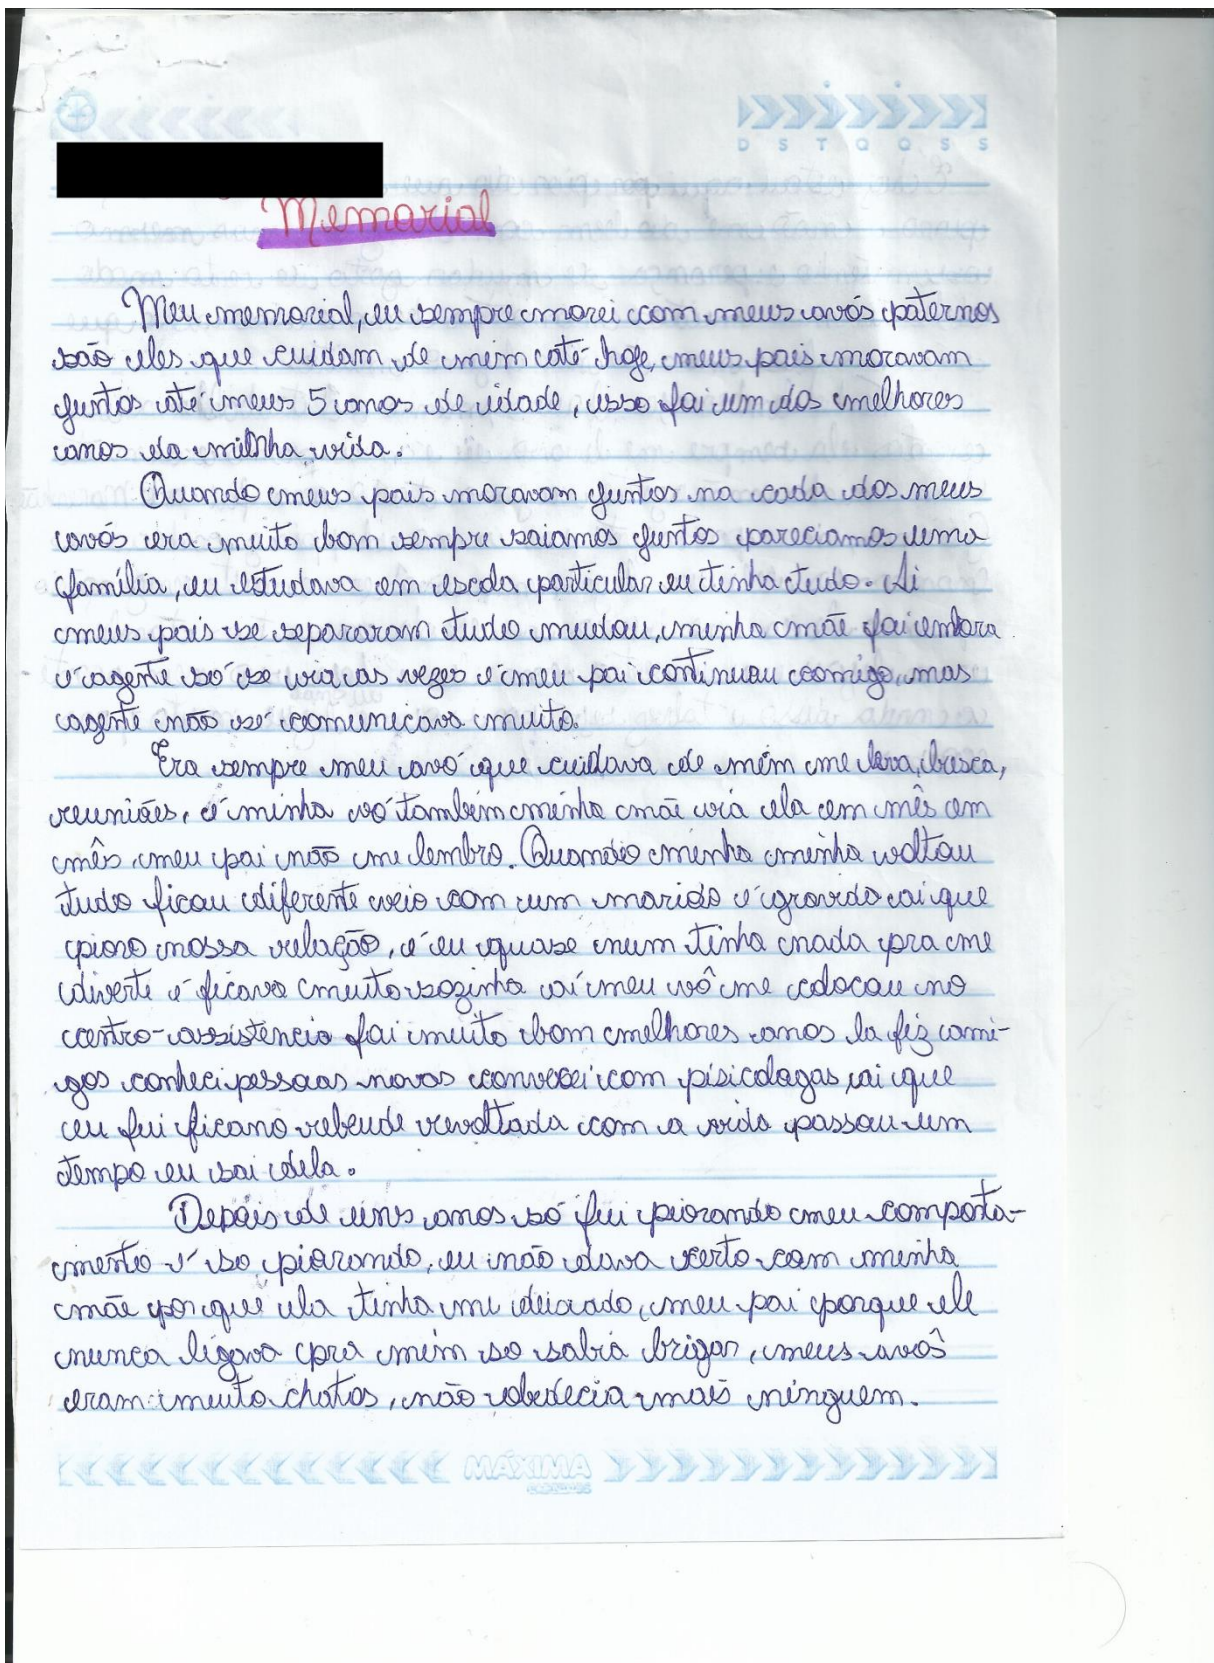 D S T Q Q S S
Memorial
Meu memorial, eu sempre morei com meus avós paternos
são eles que cuidam de mim até hoje, meus pais moravam
juntos até meus 5 anos de idade, isso foi um dos melhores
anos da minha vida.
Quando meus pais moravam juntos na cada dos meus
avós era muito bom sempre saiamos juntos pareciamos uma
família, eu estudava em escola particular eu tinha tudo. Ai
meus pais se separaram tudo mudou, minha mãe foi embora
é agente só se via as vezes é meu pai continuou comigo, mas
agente não se comunicava muito.
Era sempre meu avó que cuidava de mim me leva, busca,
reuniões, é minha vó também minha mãe via ela em mês em
mês, meu pai não me lembro. Quando minha minha voltou
tudo ficou diferente veio com um marido é gravida ai que
pioro nossa relação, é eu quase num tinha nada pra me
diverte é ficava muito sozinha aí meu vô me colocou no
centro-assistência foi muito bom melhores anos la fiz ami-
gos conheci pessoas novas conversei com pisicologas, ai que
eu fui ficano rebende revoltada com a vida passou um
tempo eu sai dela.
Depois de uns anos só fui piorando meu comporta-
mento é so piorando, eu não dava certo com minha
mãe porque ela tinha mi deixado, meu pai porque ele
nunca ligava pra mim so sabia brigar, meus avôs
eram muito chatos, não obedecia mais ninguem.
MÁXIMA